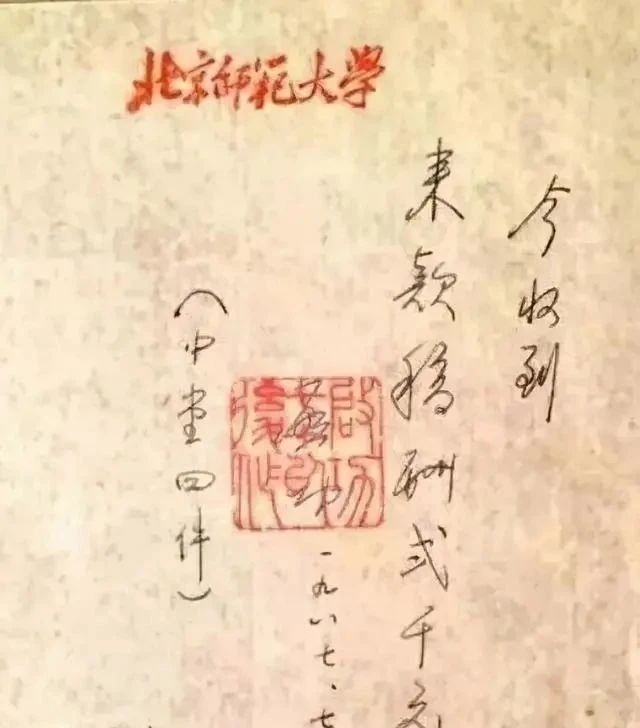 北京师范大学
今收到
来款稿酬弍千元
启功
一九八七.七
（中堂四件）